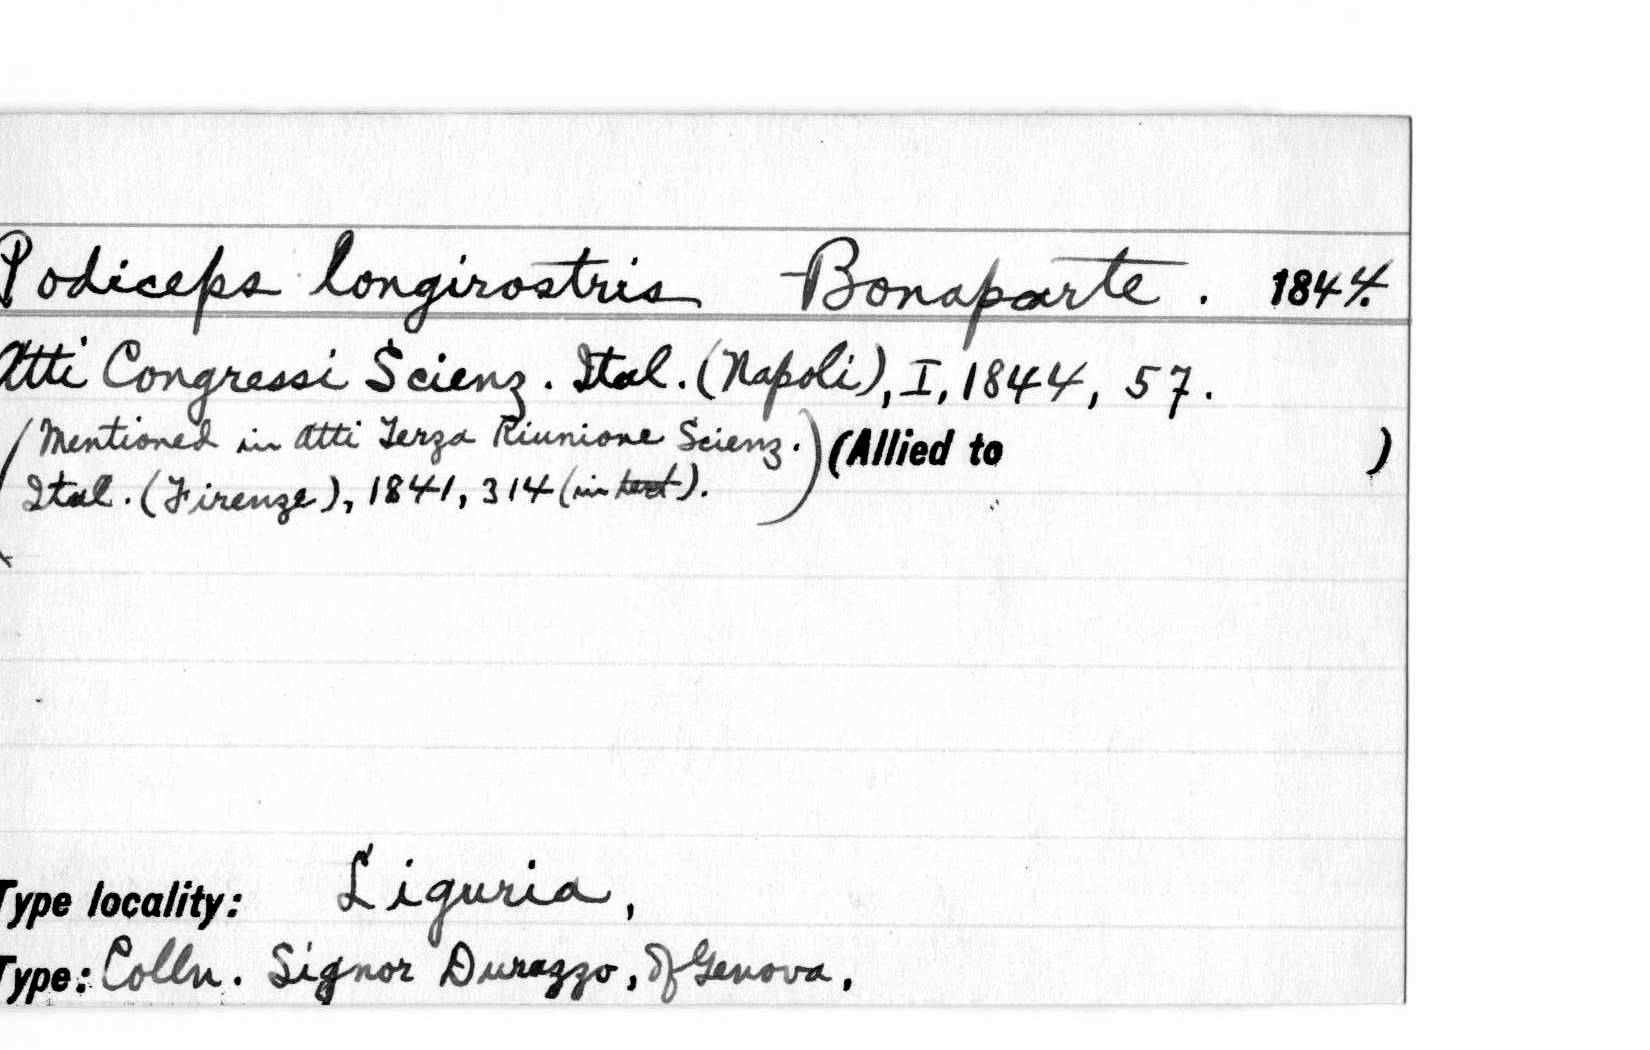 Podiceps longirostris Bonaparte. 1844.
Atti Congressi Scienz. Ital. (Napoli), I, 1844, 57.
(Mentioned in Atti Terza Riunione Scienz.
Ital. (Firenze), 1841, 314 (in text).) (Allied to )
Type locality: Liguria,
Type: Colln. Signor Durazzo, of Genova,